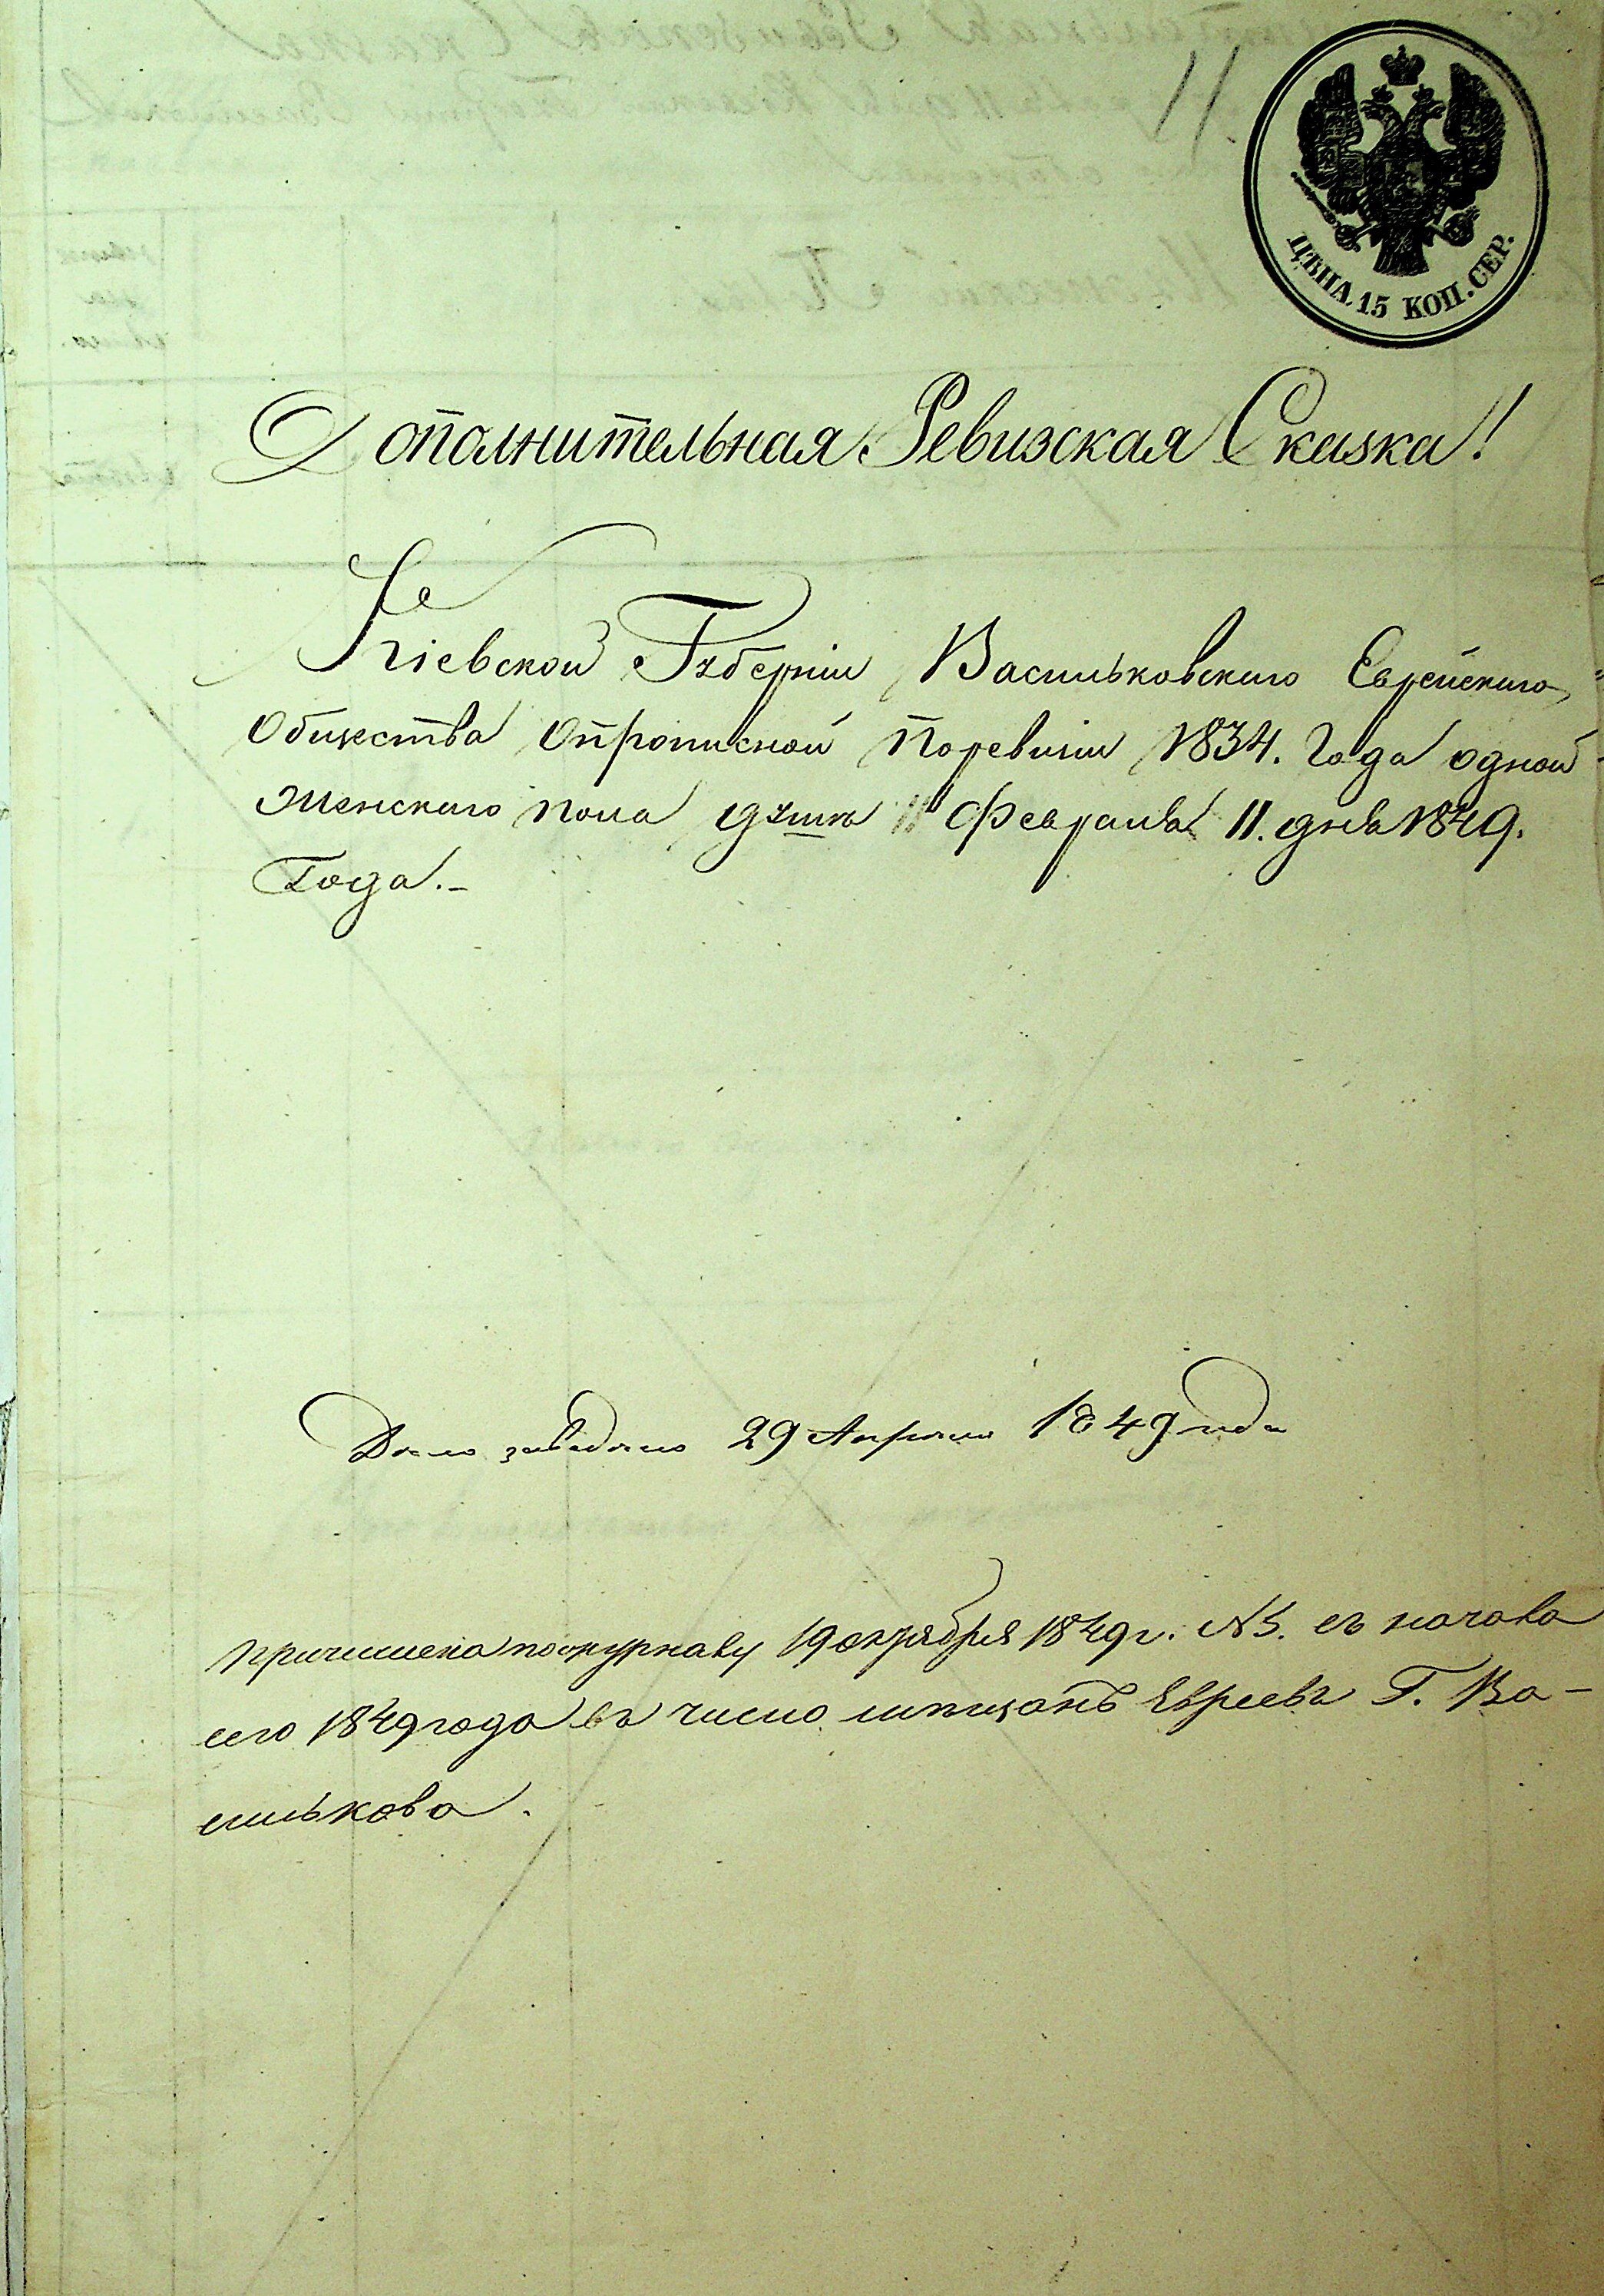 11
ЦѢНА 15 КОП. СЕР.
Дополнительная Ревизская Сказка!
Кіевской Губерніи Васильковскаго Еврейскаго
Общества Опрописной Поревизіи 1834. Года одной
Женскаго пола душѣ 11 Февраля 11. дня 1849.
Года.-
Дѣло заведено 29 Апреля 1849 года
Причислена пожурналу 19 октября 1849 г. №5. съ начала
сего 1849 года въ число мѣщанъ Евреевъ Г. Ва-
силькова.